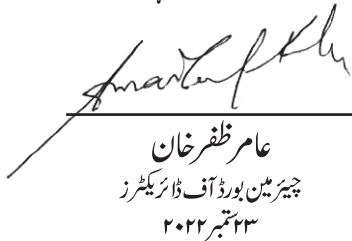 عامر ظفر خان
چیئرمین بورڈ آف ڈائریکٹرز
۲۳ ستمبر ۲۰۲۲